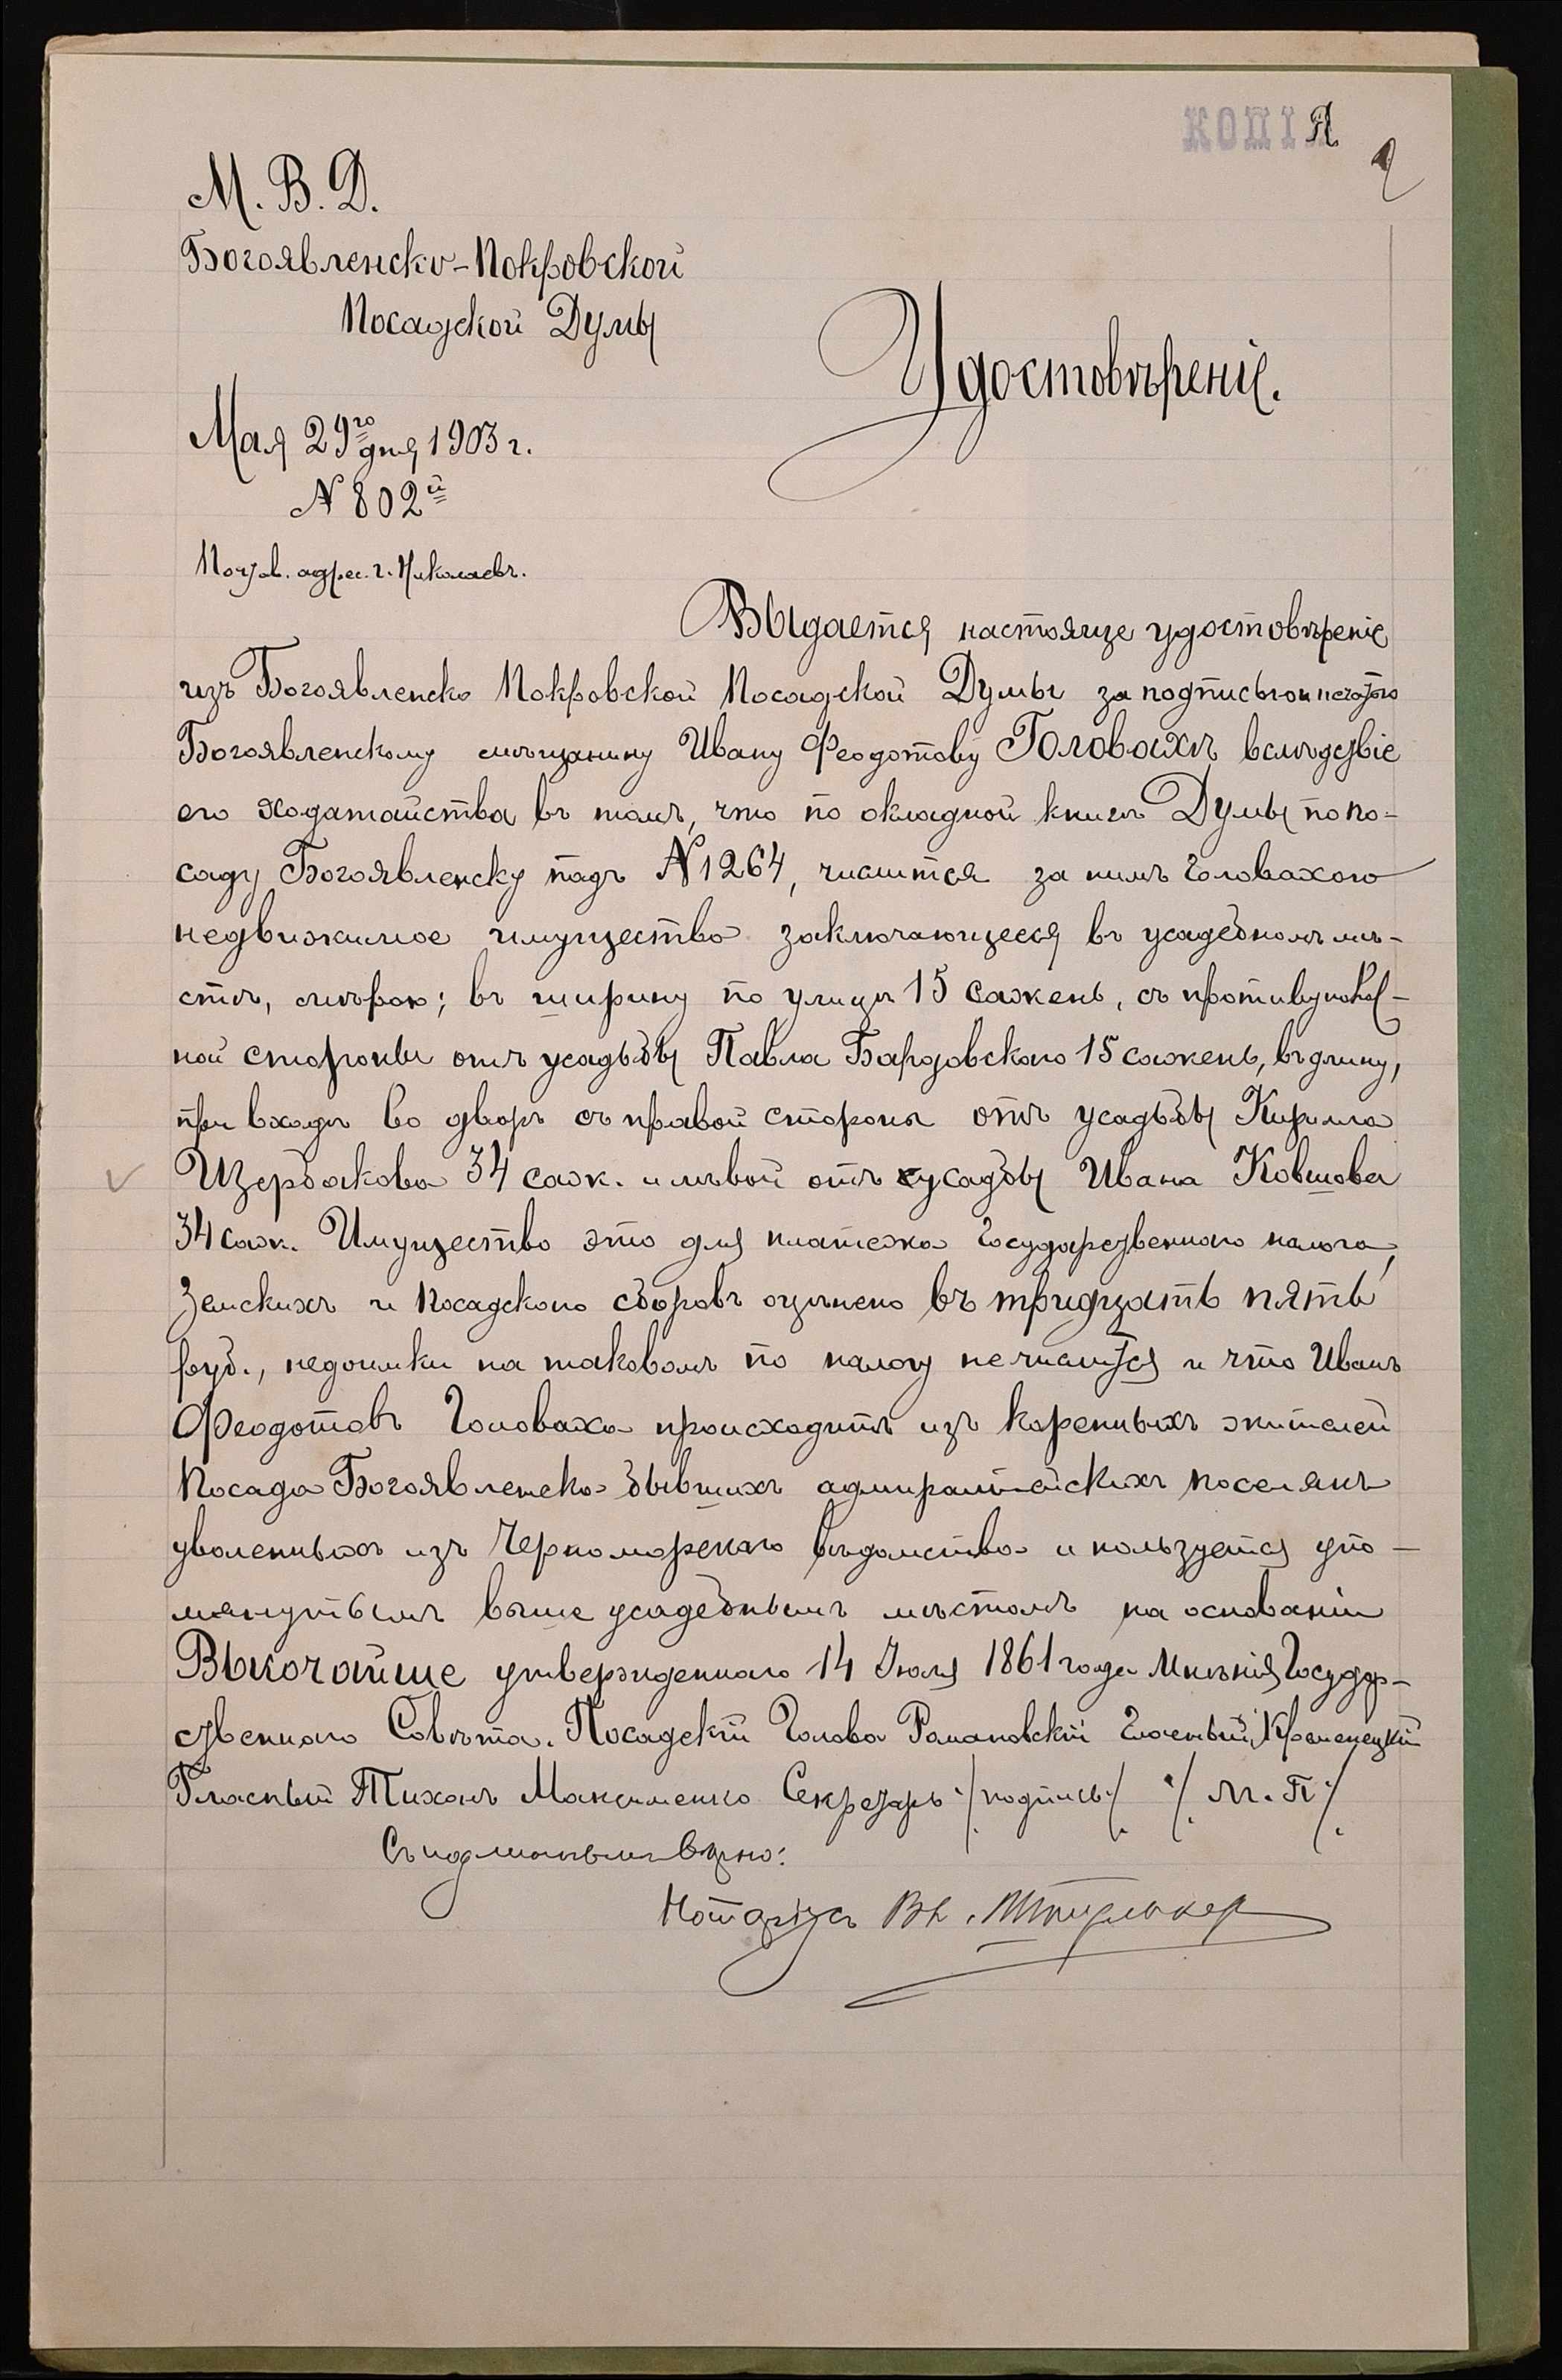 КОПІЯ
2
М. В. Д.
Богоявленско-Покровской
Посадской Думы
Удостовѣреніе.
Мая 29го дня 1903 г.
№ 802й
Почтов. адрес. г. Николаевъ.
Выдается настояще удостовѣреніе
изъ Богоявленско Покровской Посадской Думы за подписью и печатью
Богоявленскому мѣщанину Ивану Феодотову Головахѣ вслѣдствіе
его ходатайства въ томъ, что по окладной книгѣ Думы по по-
саду Богоявленску подъ № 1264, числится за нимъ Головахою
недвижимое имущество заключающееся въ усадебномъ мѣ-
стѣ, мѣрою; въ ширину по улицѣ 15 сажень, съ противупол-
ной стороны отъ усадьбы Павла 15 сажень, въ длину,
при входѣ во дворъ съ правой стороны отъ усадьбы Кирилла
Щербакова 34 саж. и лѣвой отъ усадбы Ивана Ковшова
34 саж. Имущество это для платежа Государственнаго налога,
Земскихъ и Посадского сборовъ оцѣнено въ тридцать пять
руб., недоимки на таковомъ по налогу нечислится и что Иванъ
Феодотовъ Головаха происходитъ изъ коренныхъ жителей
Посада Богоявленска бывшихъ адмиралтейскихъ поселянъ
уволенныхъ изъ Черноморскаго вѣдомства и пользуется упо-
мянутымъ выше усадебнымъ мѣстомъ на основаніи
Высочайше утвержденнаго 14 Іюля 1861 года Мнѣнія Государ-
ственнаго Совѣта. Посадскій Голова Романовскій Гласный, Кременецкій
Гласный Тихонъ Максименко Секретарь /подпись/ /М. П/
Съ подлиннымъ вѣрно:
Нотаріусъ Вл.